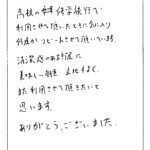 高校の時 修学旅行で
利用させて頂いたときに気に入り
何度か リピートさせて頂いています
清潔感のあるお庭に
美味しい朝食 立地もよく、
また利用させて頂きたいと
思います。
ありがとうございました。